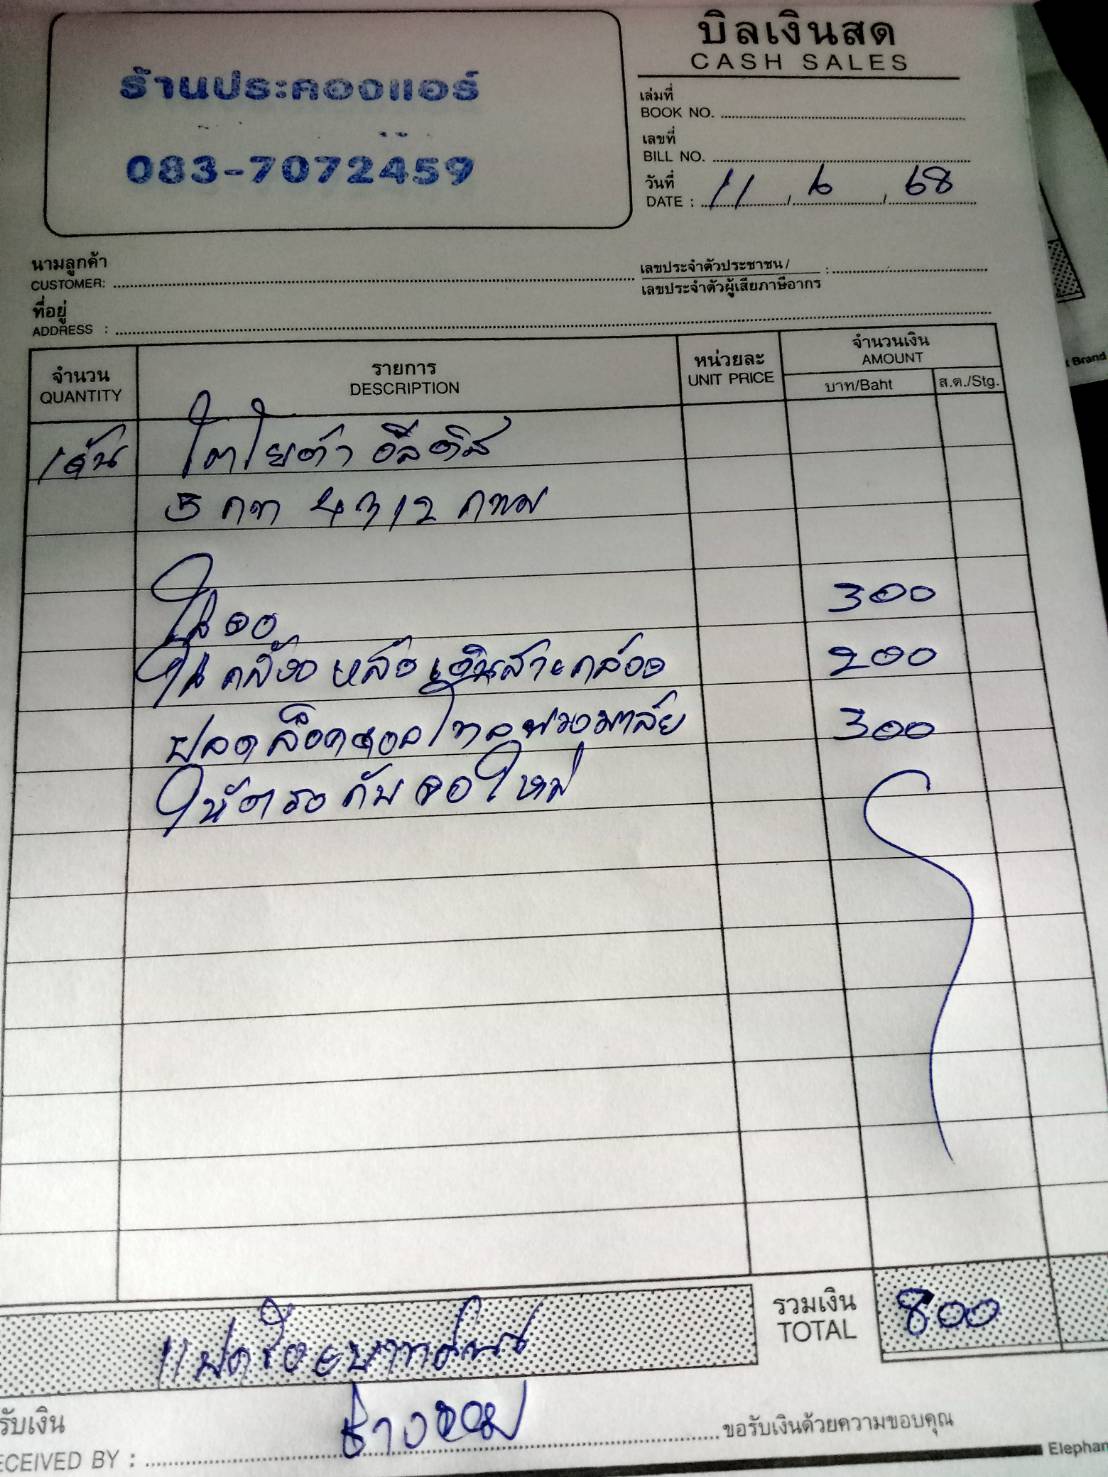 ร้านประคองแอร์
083-7072459
บิลเงินสด
CASH SALES
เล่มที่
BOOK NO.
เลขที่
BILL NO.
วันที่
DATE : 11 / 6 / 68
นามลูกค้า
CUSTOMER:
เลขประจำตัวประชาชน /
เลขประจำตัวผู้เสียภาษีอากร :
ที่อยู่
ADDRESS :
จำนวน รายการ หน่วยละ จำนวนเงิน
QUANTITY DESCRIPTION UNIT PRICE AMOUNT
บาท/Baht ส.ต./Stg.
1 คัน โตโยต้า อัลติส
5 กท 4312 กทม
ใส่จอ 300
ใส่กล้องหลัง เดินสายกล้อง 200
ปลดล็อคคอลโทลพวงมาลัย 300
ให้ตรงกับจอใหม่
รวมเงิน
TOTAL 800
แปดร้อยบาทถ้วน
รับเงิน
ECEIVED BY :
ช่าง
ขอรับเงินด้วยความขอบคุณ
Elephan
t Brand